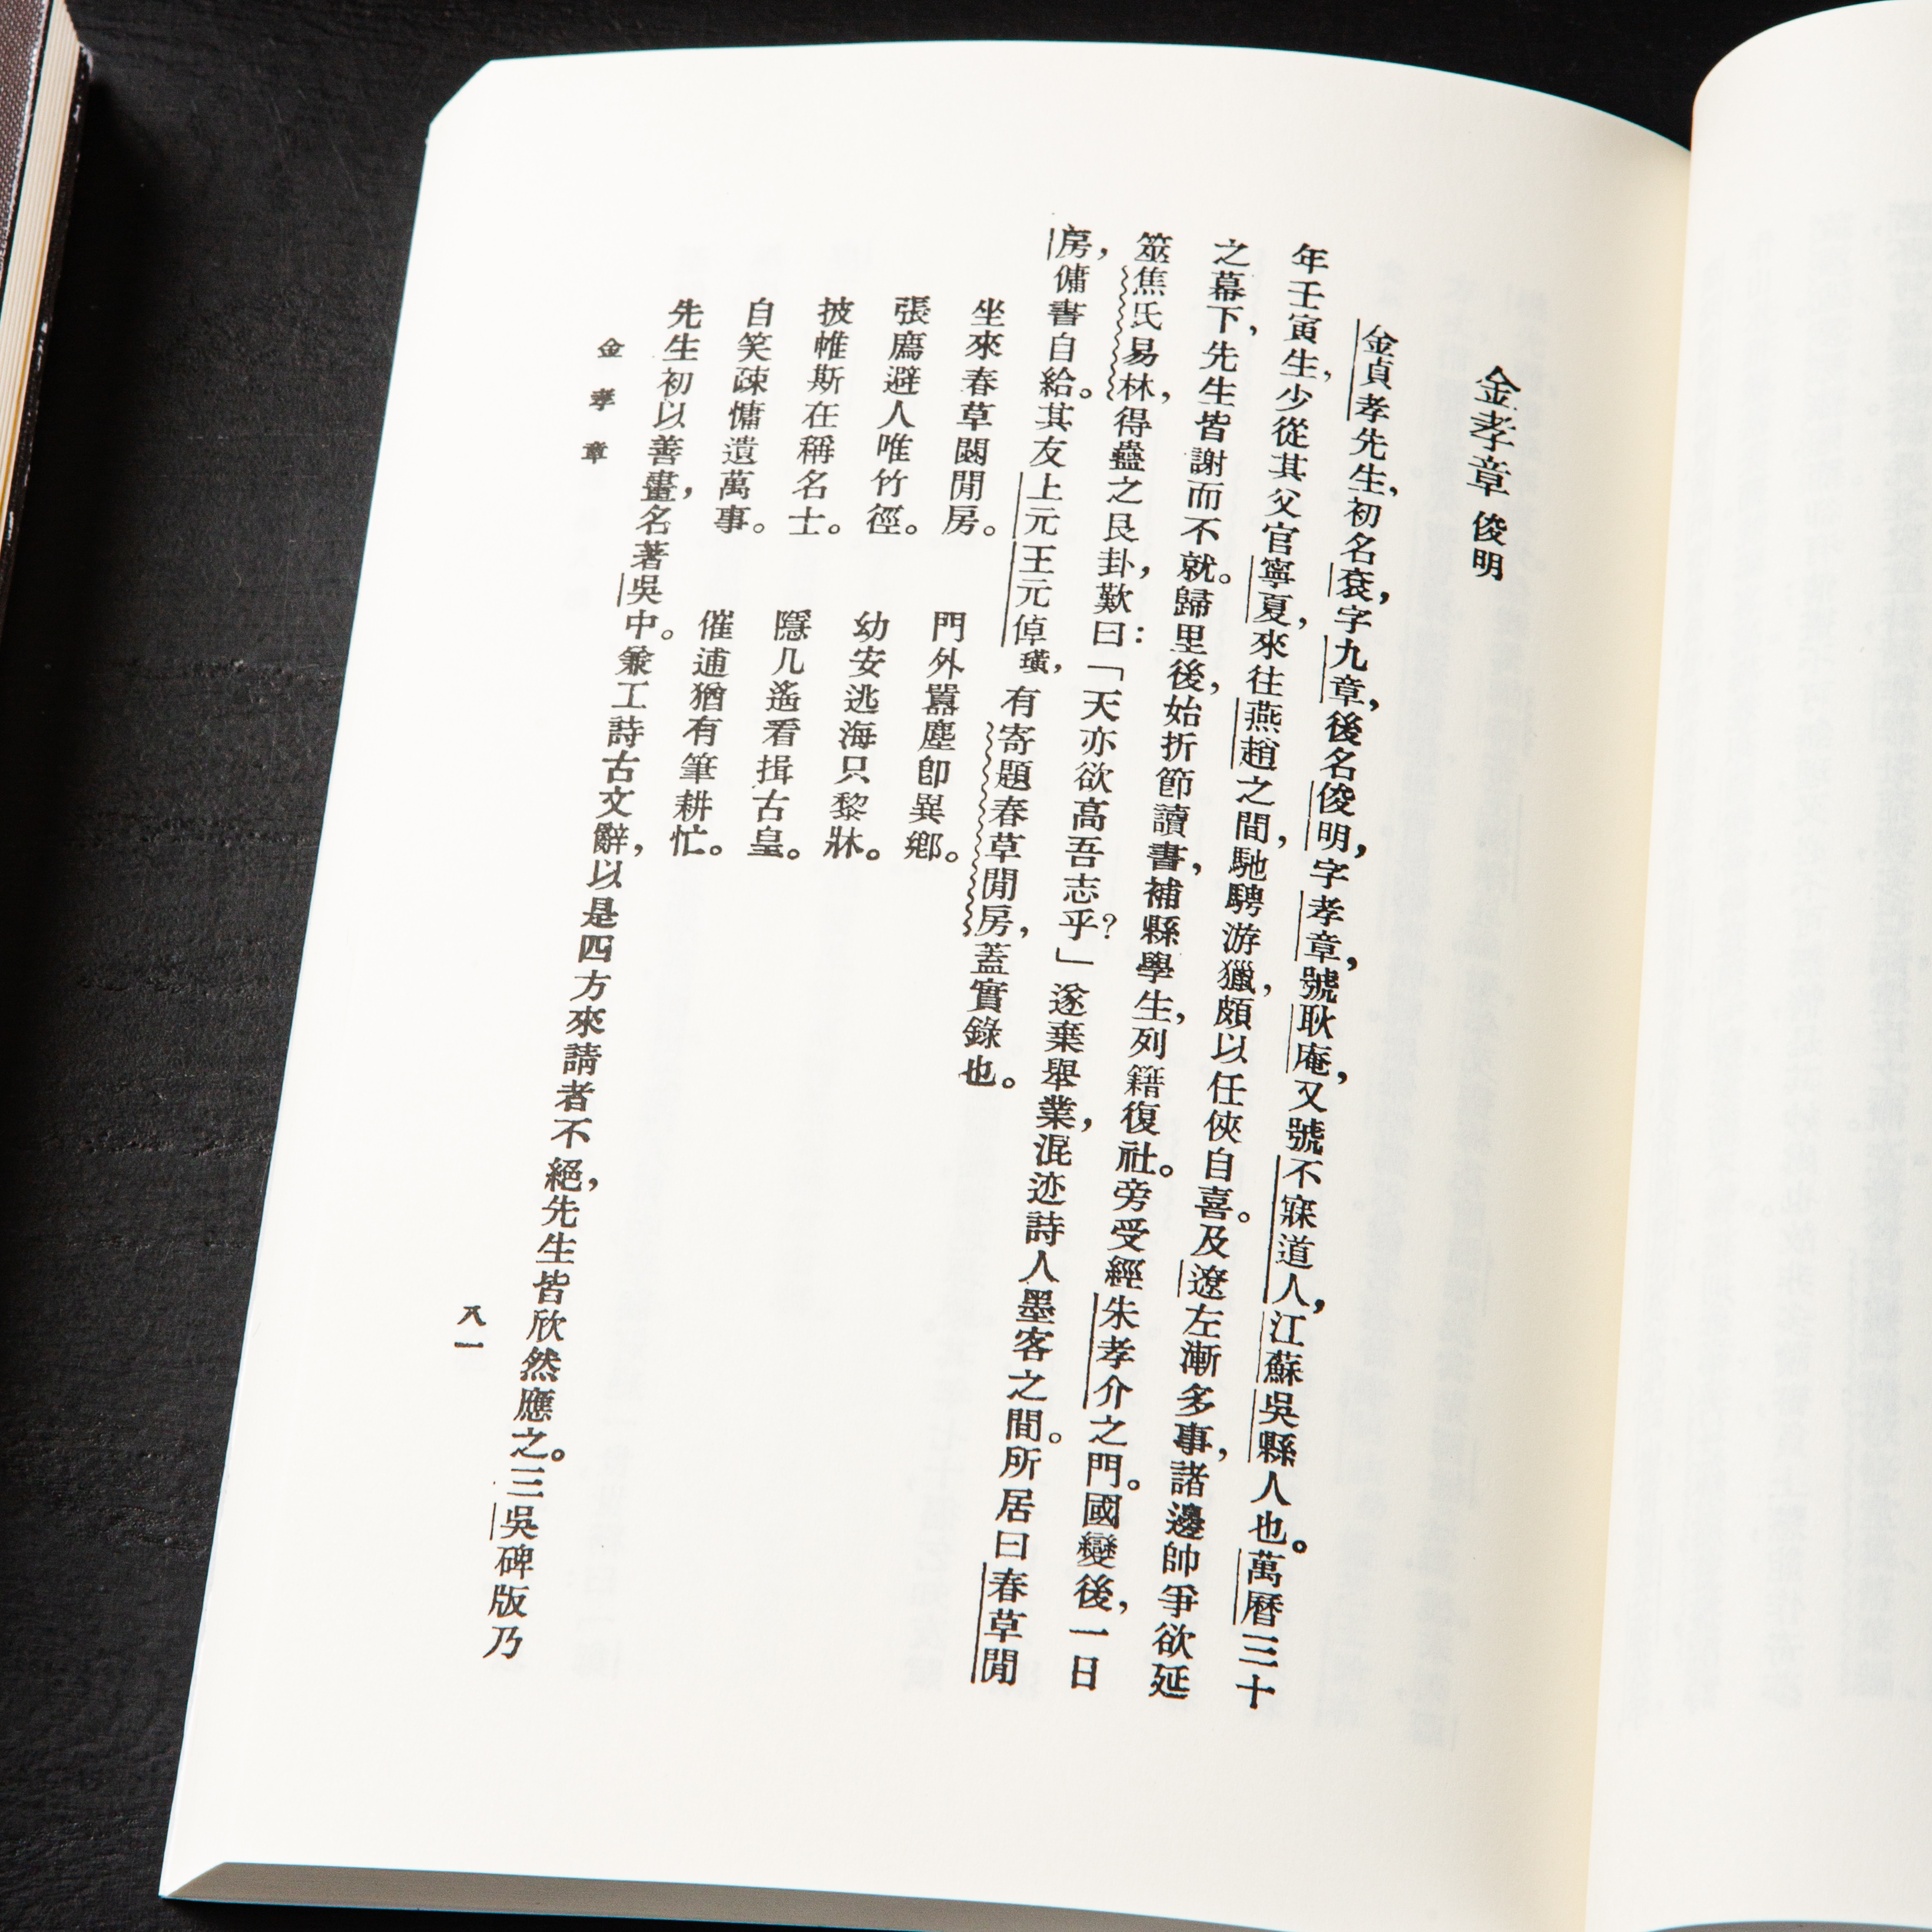 金孝章 俊明
金貞孝先生,初名袞,字九章,後名俊明,字孝章,號耿庵,又號不寐道人,江蘇吳縣人也。萬曆三十
年壬寅生,少從其父官寧夏,來往燕趙之間,馳騁游獵,頗以任俠自喜。及遼左漸多事,諸邊帥爭欲延
之幕下,先生皆謝而不就。歸里後,始折節讀書,補縣學生,列籍復社。旁受經朱孝介之門。國變後,一日
筮焦氏易林,得蠱之艮卦,歎曰:「天亦欲高吾志乎?」遂棄舉業,混迹詩人墨客之間。所居曰春草閒
房,傭書自給。其友上元王元倬璜,有寄題春草閒房,蓋實錄也。
坐來春草閟閒房。 門外囂塵卽異鄉。
張廌避人唯竹徑。 幼安逃海只黎牀。
披帷斯在稱名士。 隱几遙看揖古皇。
自笑疎慵遺萬事。 催逋猶有筆耕忙。
先生初以善畫,名著吳中。兼工詩古文辭,以是四方來請者不絕,先生皆欣然應之。三吳碑版乃
金孝章
八一